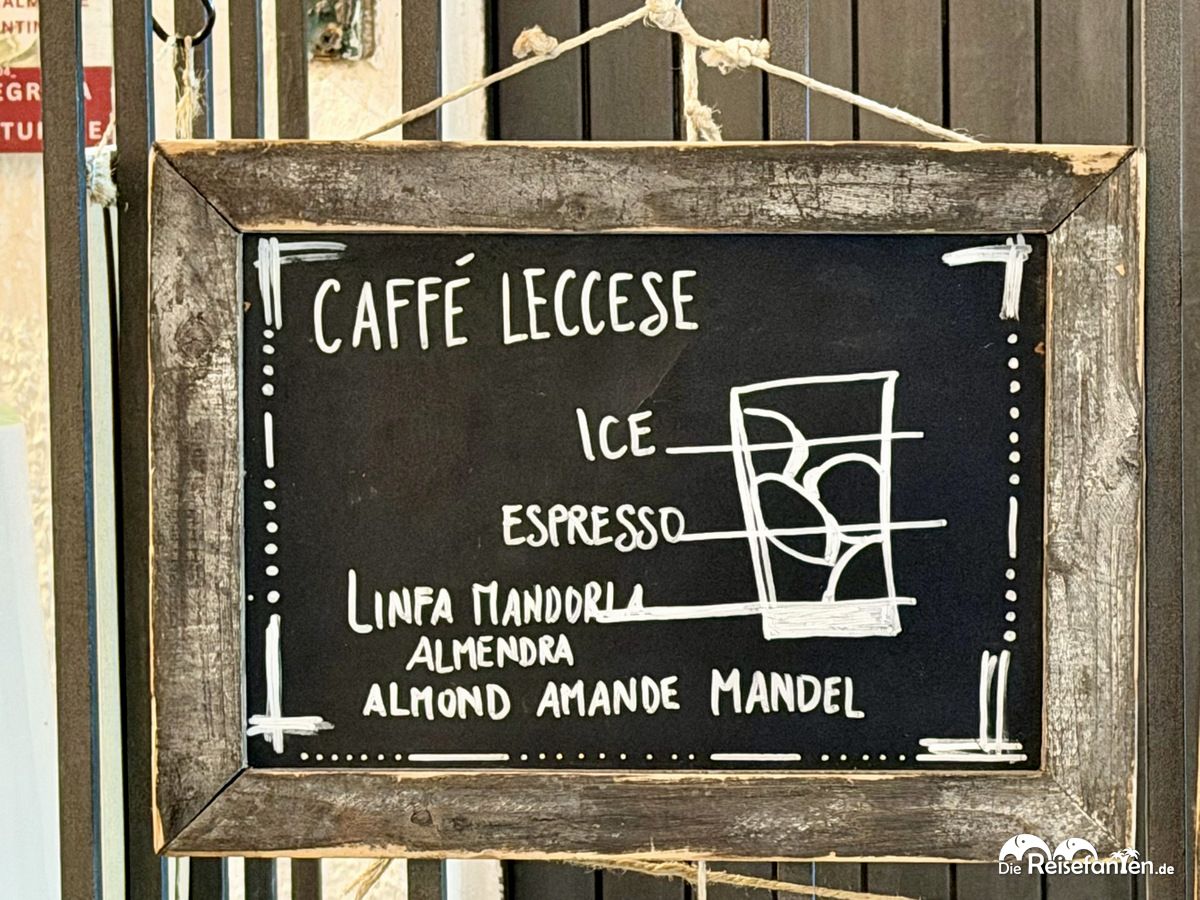 CAFFÉ LECCESE
ICE
ESPRESSO
LINFA MANDORLA
ALMENDRA
ALMOND AMANDE MANDEL
Die Reisefanten.de